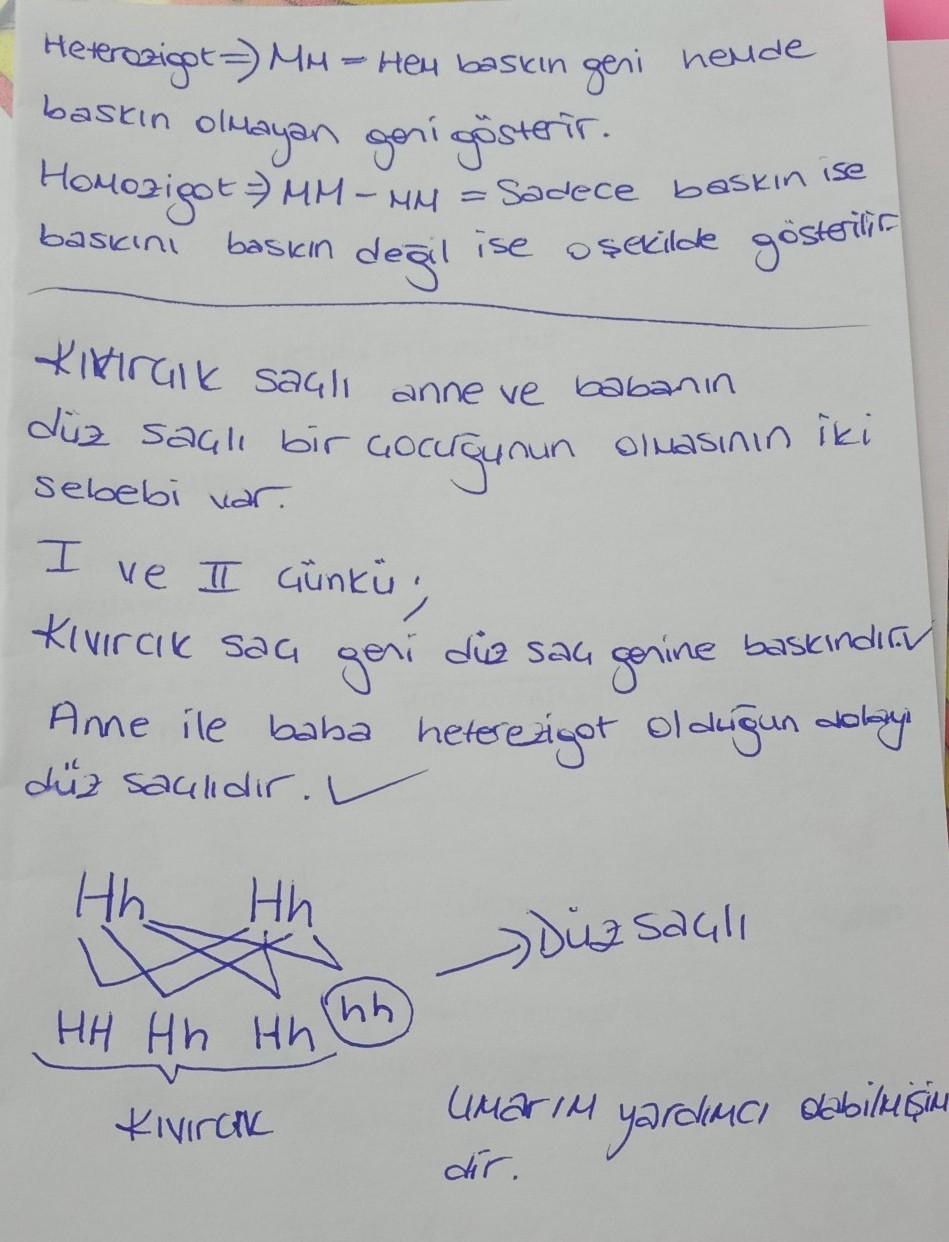 Heterozigot ⇒ Mm = Hem baskın geni hemde
baskın olmayan geni gösterir.
Homozigot ⇒ MM - mm = Sadece baskın ise
baskını baskın değil ise o şekilde gösterilir
Kıvırcık saçlı anne ve babanın
düz saçlı bir çocuğunun olmasının iki
sebebi var.
I ve II Çünkü;
Kıvırcık saç geni düz saç genine baskındır. ✓
Anne ile baba heterezigot olduğun dolayı
düz saçlıdır. ✓
Hh Hh
→ Düz saçlı
HH Hh Hh hh
Kıvırcık
Umarım yardımcı olabilmişim
dir.